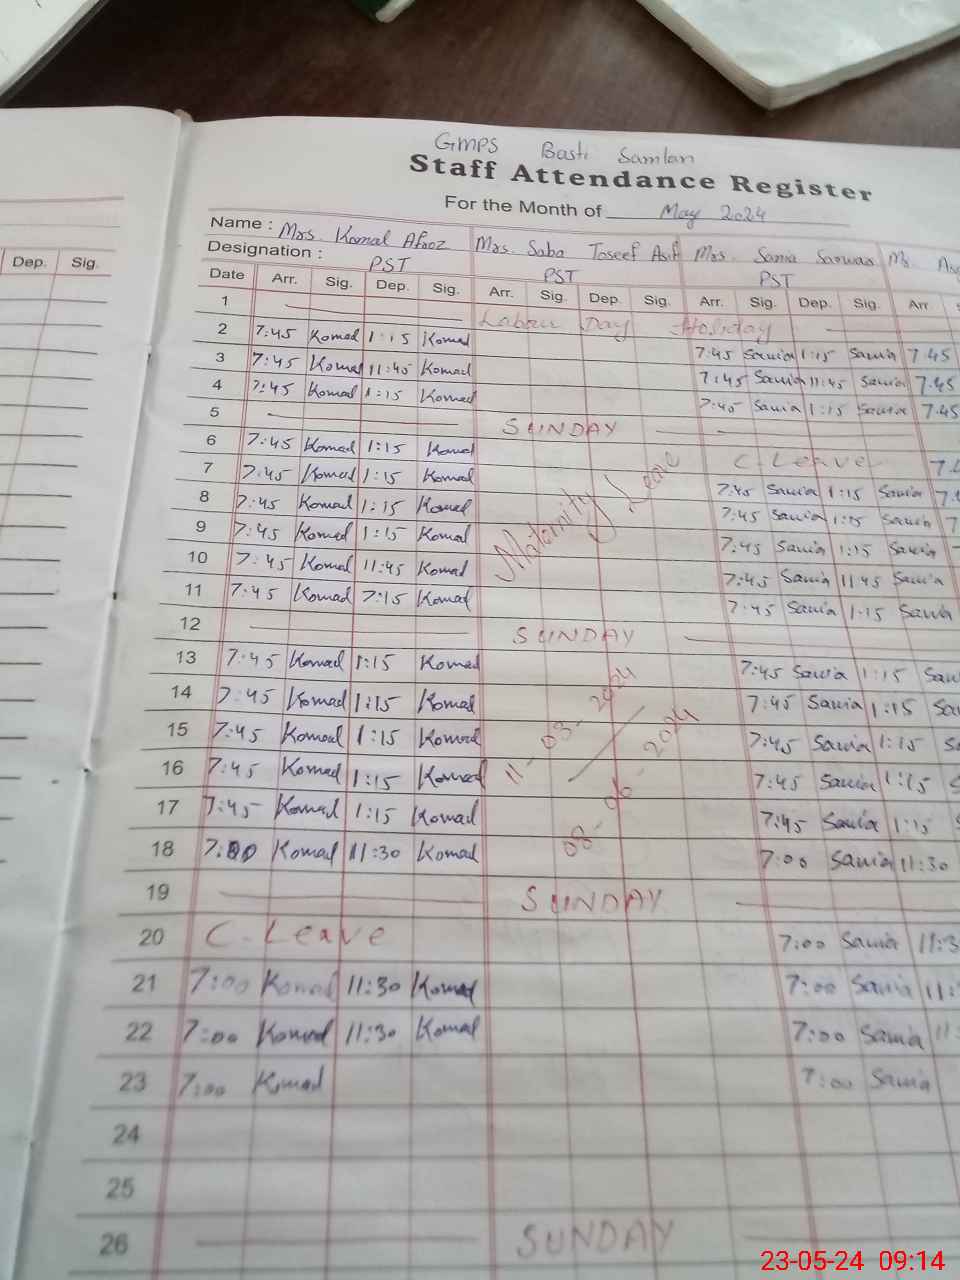 Dep. Sig.
GMPS Basti Samlan
Staff Attendance Register
For the Month of May 2024
Name : Mrs. Komal Afroz Mrs. Saba Toseef Asif Mrs. Sania Sarwar
Designation : PST PST PST
Date Arr. Sig. Dep. Sig. Arr. Sig. Dep. Sig. Arr. Sig. Dep. Sig. Arr.
1 Labour Day Holiday
2 7:45 Komal 1:15 Komal 7:45 Sania 1:15 Sania 7:45
3 7:45 Komal 11:45 Komal 7:45 Sania 11:45 Sania 7:45
4 7:45 Komal 1:15 Komal 7:45 Sania 1:15 Sania 7:45
5 SUNDAY
6 7:45 Komal 1:15 Komal C. Leave
7 7:45 Komal 1:15 Komal 7:45 Sania 1:15 Sania
8 7:45 Komal 1:15 Komal 7:45 Sania 1:15 Sania
Maternity Leave
9 7:45 Komal 1:15 Komal 7:45 Sania 1:15 Sania
10 7:45 Komal 11:45 Komal 7:45 Sania 11:45 Sania
11 7:45 Komal 7:15 Komal 7:45 Sania 1:15 Sania
12 SUNDAY
13 7:45 Komal 1:15 Komal 7:45 Sania 1:15
14 7:45 Komal 1:15 Komal 7:45 Sania 1:15
11-03-2024
15 7:45 Komal 1:15 Komal 7:45 Sania 1:15
16 7:45 Komal 1:15 Komal 7:45 Sania 1:15
17 7:45 Komal 1:15 Komal 7:45 Sania 1:15
08-06-2024
18 7:00 Komal 11:30 Komal 7:00 Sania 11:30
19 SUNDAY
20 C. Leave 7:00 Sania 11:3
21 7:00 Komal 11:30 Komal 7:00 Sania 11:
22 7:00 Komal 11:30 Komal 7:00 Sania 11
23 7:00 Komal 7:00 Sania
24
25
26 SUNDAY
23-05-24 09:14